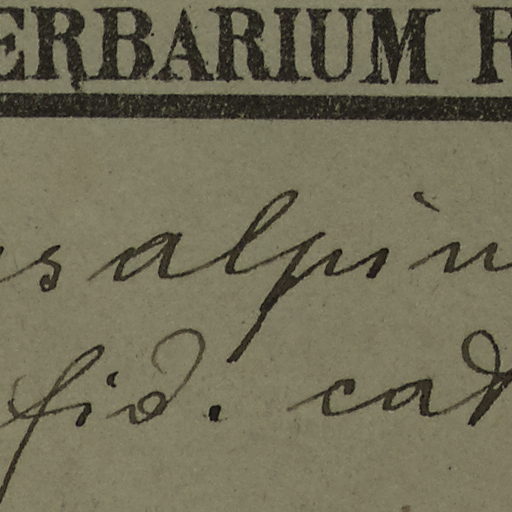 ERBARIUM R
s alpin
fid. cad